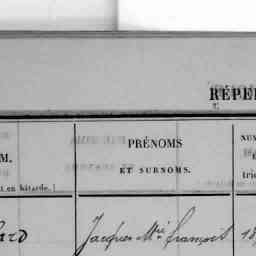 RÉPE
PRÉNOMS
ET SURNOMS.
NU
M.
tri
t en bâtarde.)
Jacques Mie François
18